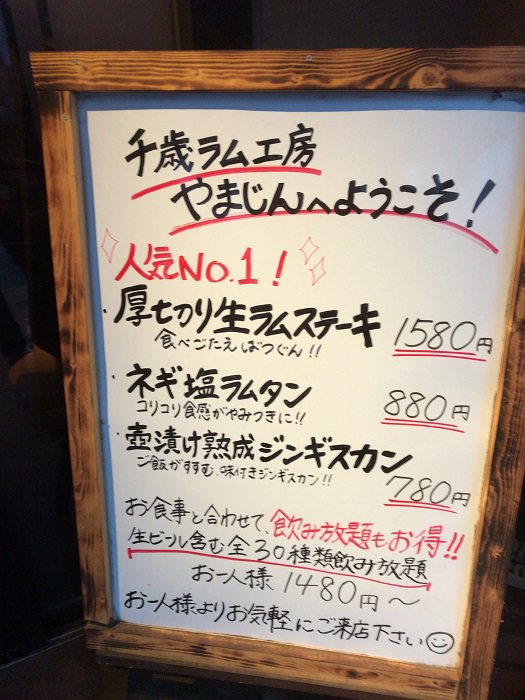 千歳ラム工房
やまじんへようこそ！
人気No.1！
・厚切り生ラムステーキ 1580円
食べごたえばつぐん!!
・ネギ塩ラムタン 880円
コリコリ食感がやみつきに!!
・壺漬け熟成ジンギスカン 780円
ご飯がすすむ、味付きジンギスカン!!
お食事と合わせて、飲み放題もお得!!
生ビール含む全30種類飲み放題
お一人様 1480円〜
お一人様よりお気軽にご来店下さい